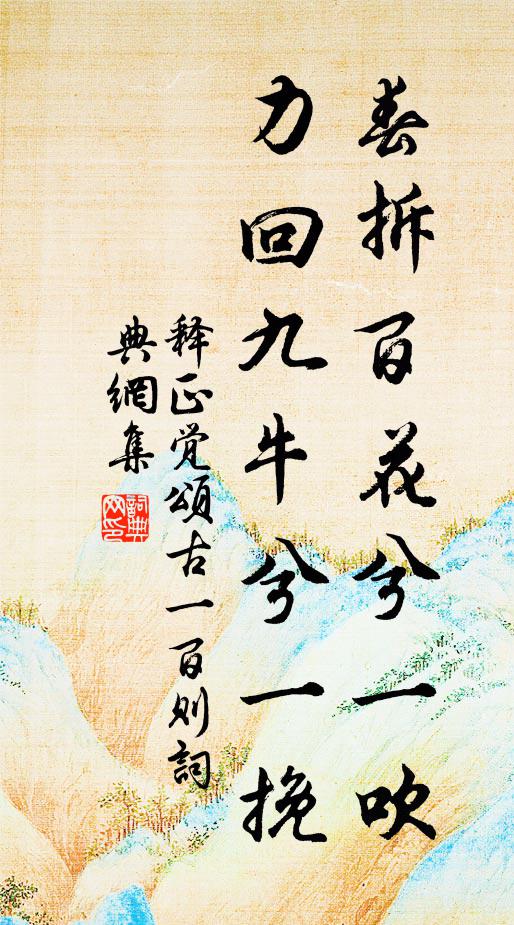 春拆百花兮一吹
力回九牛兮一挽
释正觉颂古一百则詞
典網集
詞典
网印